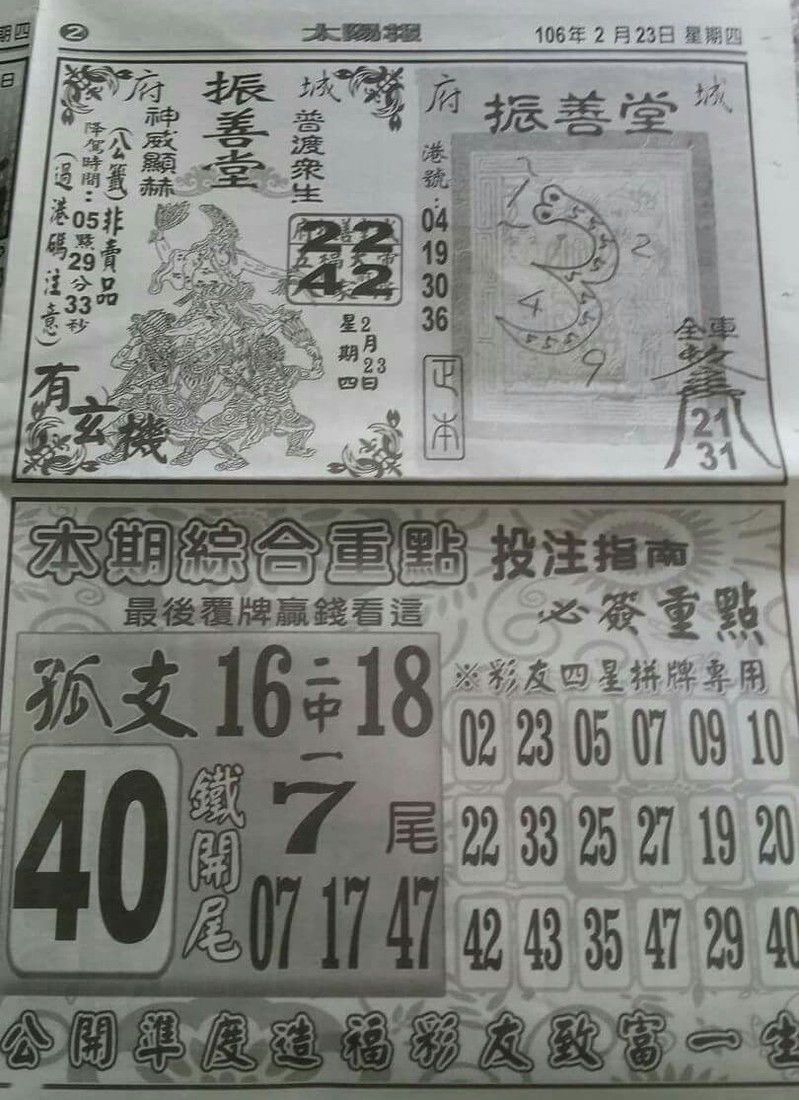 期四
日
2 太陽報 106年2月23日 星期四
府城
振善堂
神威顯赫
普渡眾生
(公籤)非賣品
降駕時間:05點29分33秒
(過港碼注意)
22
42
2月23日
星期四
有玄機
府城
振善堂
港號:
04
19
30
36
正本
2
4
9
全車
21
31
本期綜合重點 投注指南
最後覆牌贏錢看這
必簽重點
孤支 16 二中一 18
40
鐵開尾
7尾
07 17 47
※彩友四星拼牌專用
02 23 05 07 09 10
22 33 25 27 19 20
42 43 35 47 29 40
公開準度造福彩友致富一生